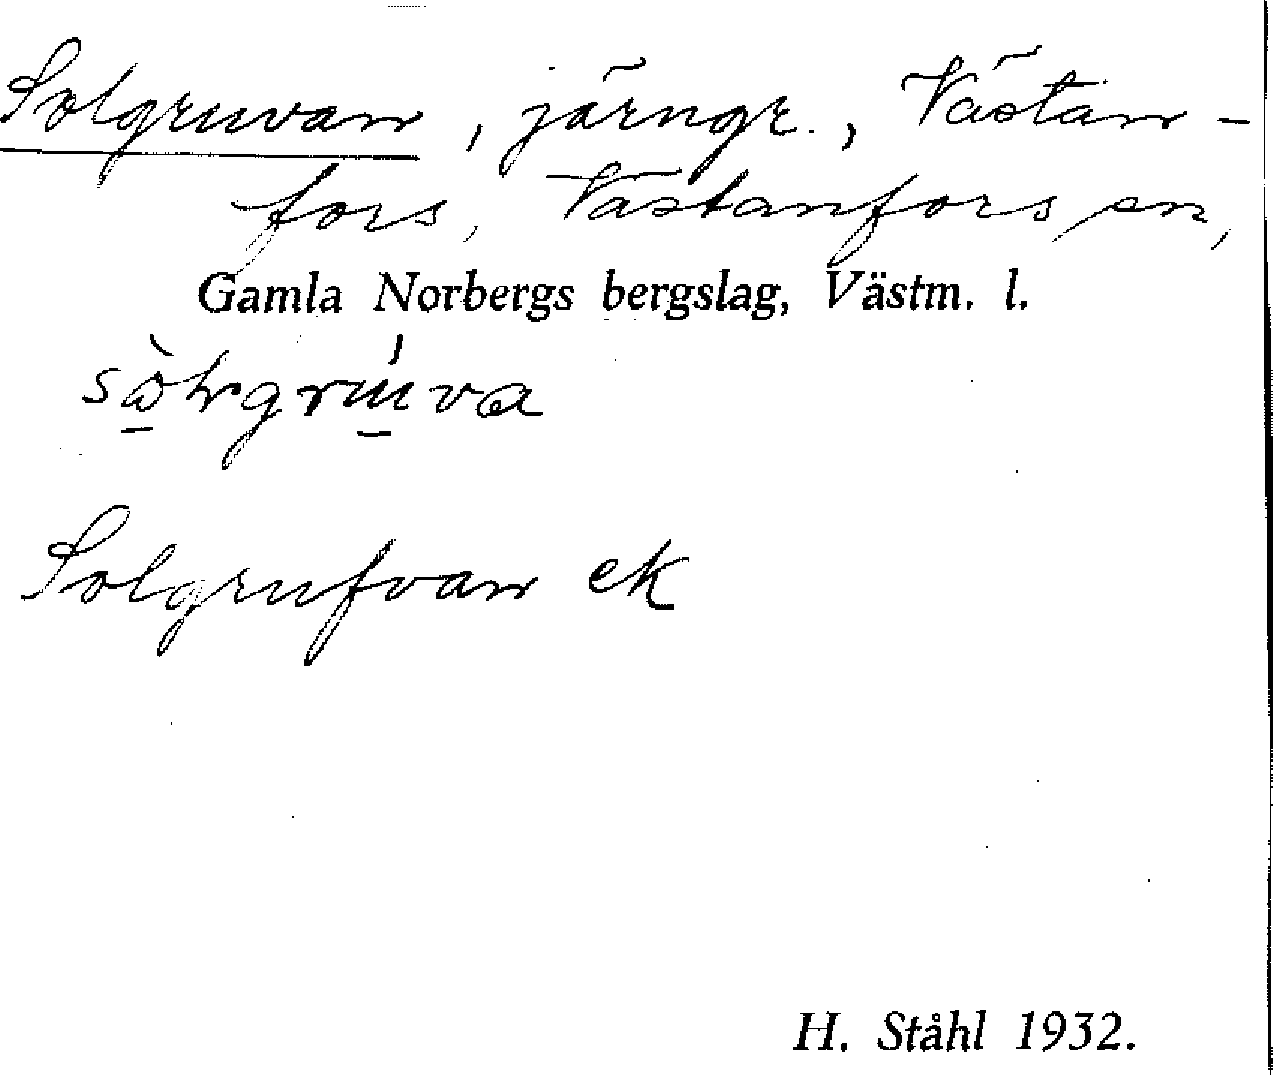 Solgruvan, järngr., Västan-
fors, Västanfors sn,
Gamla Norbergs bergslag, Västm. l.
Solgrufvan ek
H. Ståhl 1932.